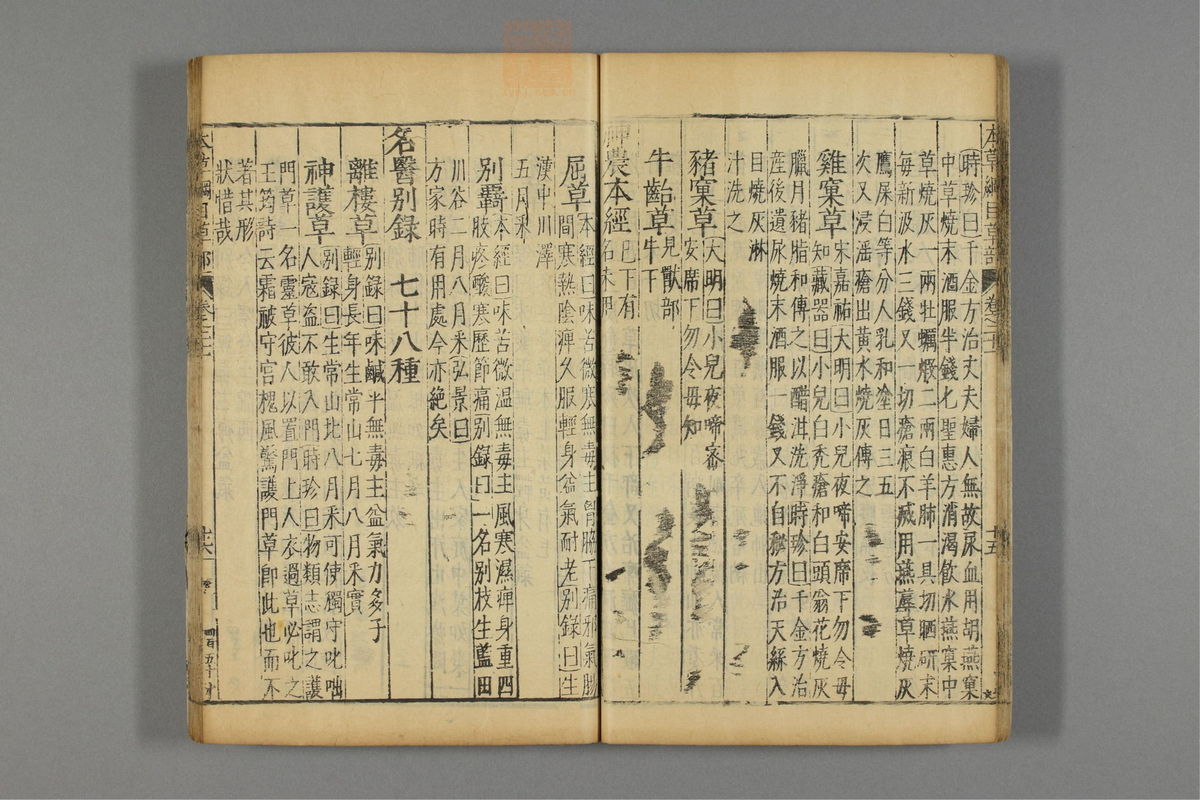 本草綱目草部 卷之二十一 十五
時珍曰千金方治丈夫婦人無故尿血用胡燕窠
中草燒末酒服半錢匕聖惠方消渴飲水燕窠中
草燒灰一兩牡蠣煅二兩白羊肺一具切晒研末
每新汲水三錢又一切瘡痕不滅用燕蓐草燒灰
鷹屎白等分人乳和塗日三五
次又浸淫瘡出黃水燒灰傅之
雞窠草
宋嘉祐大明曰小兒夜啼安席下勿令母
知藏器曰小兒白禿瘡和白頭翁花燒灰
臘月豬脂和傅之以醋泔洗淨時珍曰千金方治
產後遺尿燒末酒服一錢又不自秘方治天絲入
目燒灰淋
汁洗之
豬窠草
大明曰小兒夜啼密
安席下勿令母知
牛齝草
見獸部
牛下
神農本經
已下有
名未用
屈草
本經曰味苦微寒無毒主胷脇下痛邪氣腸
間寒熱陰痺久服輕身益氣耐老別錄曰生
漢中川澤
五月采
別覊
本經曰味苦微溫無毒主風寒濕痺身重四
肢疼酸寒歷節痛別錄曰一名別枝生藍田
川谷二月八月采弘景曰
方家時有用處今亦絶矣
名醫別錄 七十八種
離樓草
別錄曰味鹹平無毒主益氣力多子
輕身長年生常山七月八月采實
神護草
別錄曰生常山北八月采可使獨守叱咄
人寇盗不敢入門時珍曰物類志謂之護
門草一名靈草彼人以置門上人衣過草必叱之
王筠詩云霜被守宮槐風驚護門草即此也而不
著其形
狀惜哉
本草綱目草部 卷之二十一 十六